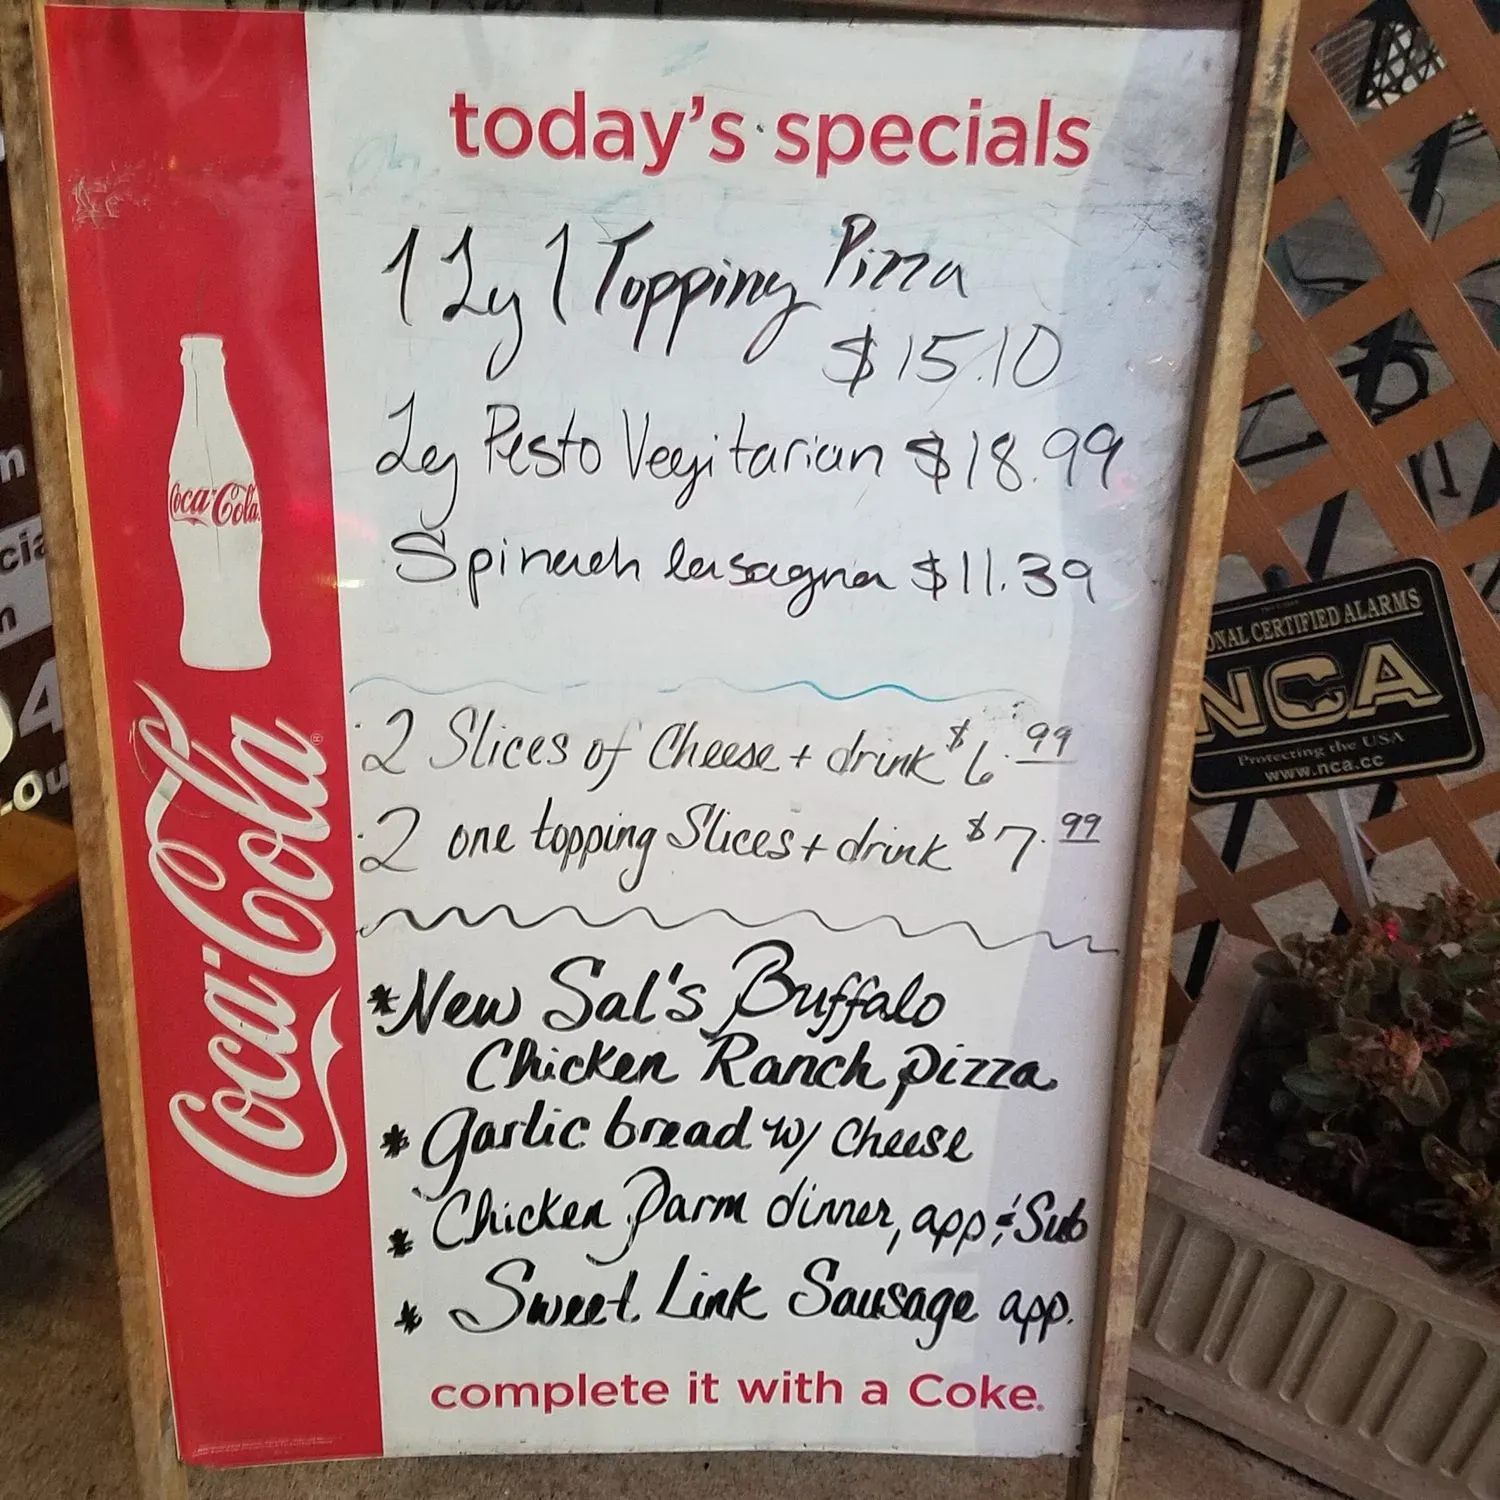 today's specials
1 Lg 1 Topping Pizza
$15.10
Lg Pesto Vegitarian $18.99
Spinach lasagna $11.39
2 Slices of Cheese + drink $6.99
2 one topping Slices + drink $7.99
*New Sal's Buffalo
Chicken Ranch pizza
* Garlic bread w/ Cheese
* Chicken Parm dinner, app & Sub
* Sweet Link Sausage app.
complete it with a Coke.
Coca-Cola
Coca-Cola®
ONAL CERTIFIED ALARMS
NCA
Protecting the USA
www.nca.cc